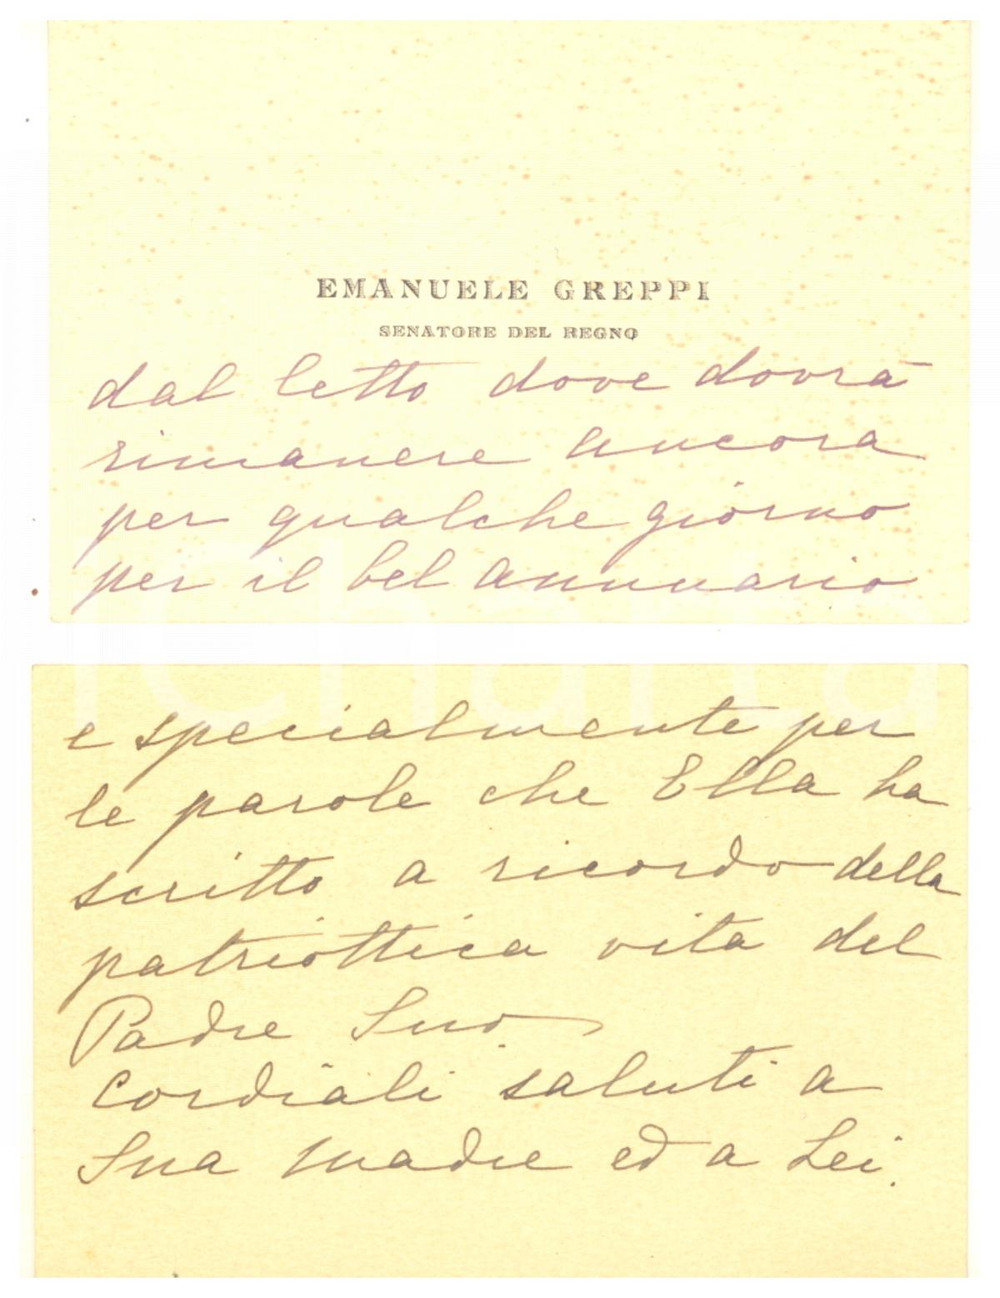 EMANUELE GREPPI
SENATORE DEL REGNO
dal letto dove dovrà
rimanere ancora
per qualche giorno
per il bel annuario
e specialmente per
le parole che Ella ha
scritto a ricordo della
patriottica vita del
Padre Suo
Cordiali saluti a
Sua madre ed a Lei.